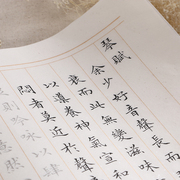 琴賦
余少好音聲長而
衰而此無變滋味
以導養神氣宣和
悶者莫近於聲音
吟詠以肆